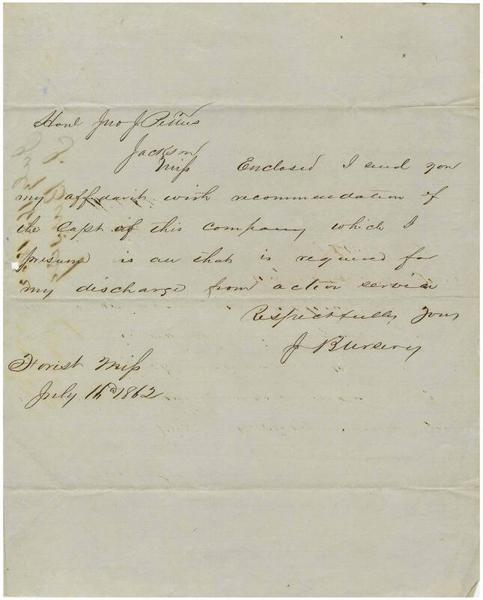 Honl Jno J. Pettus
Jackson
Miss Enclosed I send you
my affidavit with recommendation of
the Capt of this company which I
presume is all that is required for
my discharge from action service
Respectfully Yours
J
Forist Miss
July 1862